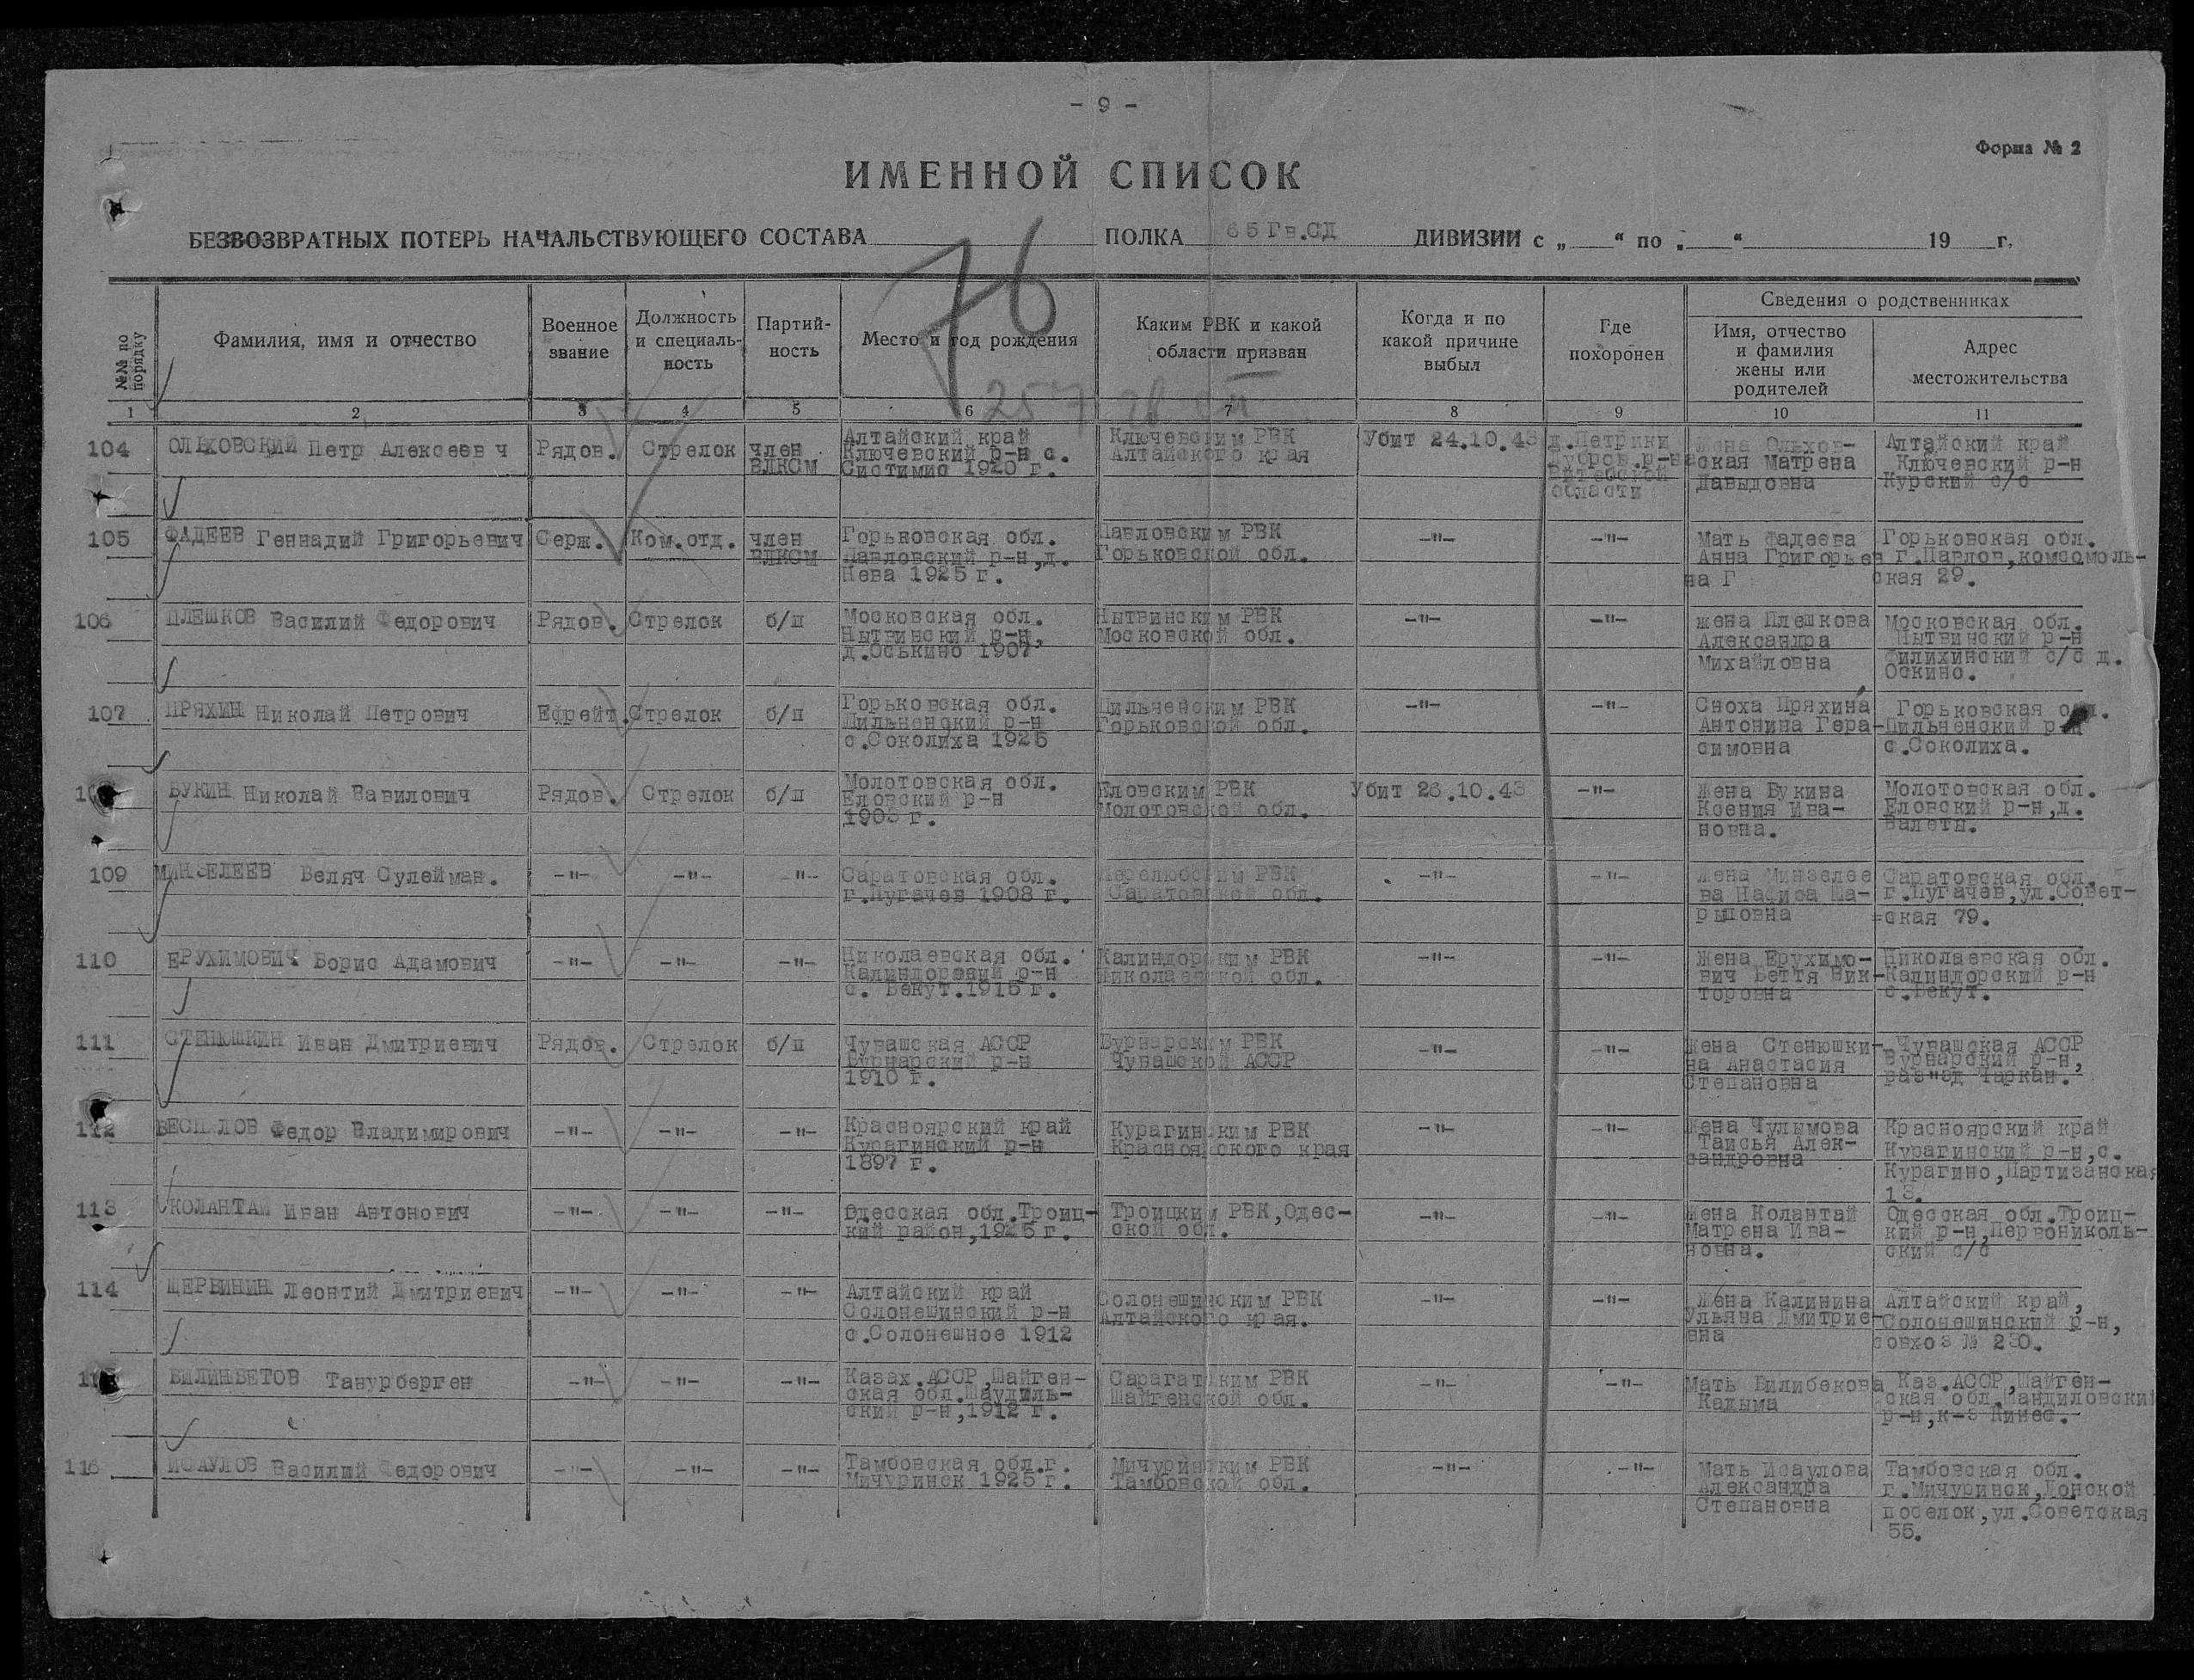 - 9 -
Форма № 2
ИМЕННОЙ СПИСОК
БЕЗВОЗВРАТНЫХ ПОТЕРЬ НАЧАЛЬСТВУЮЩЕГО СОСТАВА ПОЛКА 65 Гв.СД ДИВИЗИИ с „ “ по „ “ 19 г.
76
№№ по порядку
Фамилия, имя и отчество
Военное звание
Должность и специаль-ность
Партий-ность
Место и год рождения
Каким РВК и какой области призван
Когда и по какой причине выбыл
Где похоронен
Сведения о родственниках
Имя, отчество и фамилия жены или родителей
Адрес местожительства
1 2 3 4 5 6 7 8 9 10 11
257 гв сп
104 ОЛЬХОВСКИЙ Петр Алексеев ч Рядов. Стрелок член ВЛКСМ Алтайский край Ключевский р-н с. Систимис 1920 г. Ключевским РВК Алтайского края Убит 24.10.43 д.Петрики Дубров.р-на Витебской области Жена Ольхов-ская Матрена Давыдовна Алтайский край Ключевский р-н Курский с/с
105 ФАДЕЕВ Геннадий Григорьевич Серж. Ком.отд. член ВЛКСМ Горьковская обл. Павловский р-н,д. Нева 1925 г. Павловским РВК Горьковской обл. -"- -"- Мать Фадеева Анна Григорьев на Г Горьковская обл. г.Павлов,комсомоль-ская 29.
106 ПЛЕШКОВ Василий Федорович Рядов. Стрелок б/п Московская обл. Нытвинский р-н, д.Оськино 1907 Нытвинским РВК Московской обл. -"- -"- жена Плешкова Александра Михайловна Московская обл. Нытвинский р-н Филихинский с/с д. Оскино.
107 ПРЯХИН Николай Петрович Ефрейт. Стрелок б/п Горьковская обл. Пильненский р-н с.Соколиха 1925 Пильненским РВК Горьковской обл. -"- -"- Сноха Пряхина Антонина Гера-симовна Горьковская обл. Пильненский р-н с.Соколиха.
ВУКИН Николай Вавилович Рядов. Стрелок б/п Молотовская обл. Еловский р-н 1903 г. Еловским РВК Молотовской обл. Убит 26.10.43 -"- Жена Вукина Ксения Ива-новна. Молотовская обл. Еловский р-н,д. Валеты.
109 МИНЗЕЛЕЕВ Веляч Сулейман. -"- -"- -"- Саратовская обл. г.Пугачев 1908 г. Перелюбским РВК Саратовской обл. -"- -"- Жена Минзелее ва Нафиса Ша-рыповна Саратовская обл. г.Пугачев,ул.Совет-ская 79.
110 ЕРУХИМОВИЧ Борис Адамович -"- -"- -"- Николаевская обл. Калиндорский р-н с. Бекут.1915 г. Калиндорским РВК Николаевской обл. -"- -"- Жена Ерухимо-вич Беття Вик-торовна Николаевская обл. Калиндорский р-н с.Бекут.
111 СТЕНЮШКИН Иван Дмитриевич Рядов. Стрелок б/п Чувашская АССР Вурнарский р-н 1910 г. Вурнарским РВК Чувашской АССР -"- -"- Жена Стенюшки-на Анастасия Степановна Чувашская АССР Вурнарский р-н, раз"эд Чаркан.
112 Федор Владимирович -"- -"- -"- Красноярский край Курагинский р-н 1897 г. Курагинским РВК Красноярского края -"- -"- Жена Чулымова Таисья Алек-сандровна Красноярский край Курагинский р-н,с. Курагино,Партизанская 13.
113 КОЛАНТАЙ Иван Антонович -"- -"- -"- Одесская обл.Троиц-кий район,1925 г. Троицким РВК,Одес-ской обл. -"- -"- Жена Колантай Матрена Ива-новна. Одесская обл.Троиц-кий р-н,Первониколь-ский с/с
114 ЩЕРБИНИН Леонтий Дмитриевич -"- -"- -"- Алтайский край Солонешинский р-н с.Солонешное 1912 Солонешинским РВК Алтайского края. -"- -"- Жена Калинина Ульяна Дмитрие-вна Алтайский край, Солонешинский р-н, совхоз № 230.
БИЛИНБЕТОВ Танурберген -"- -"- -"- Казах.АССР,Шайген-ская обл.Шаудиль-ский р-н,1912 г. Сарагатским РВК Шайгенской обл. -"- -"- Мать Билибекова Кадыма Каз.АССР,Шайген-ская обл.Шандиловский р-н,к-з Кинес.
116 ИСАУЛОВ Василий Федорович -"- -"- -"- Тамбовская обл.г. Мичуринск 1925 г. Мичуринским РВК Тамбовской обл. -"- -"- Мать Исаулова Александра Степановна Тамбовская обл. г.Мичуринск,Донской поселок,ул.Советская 55.